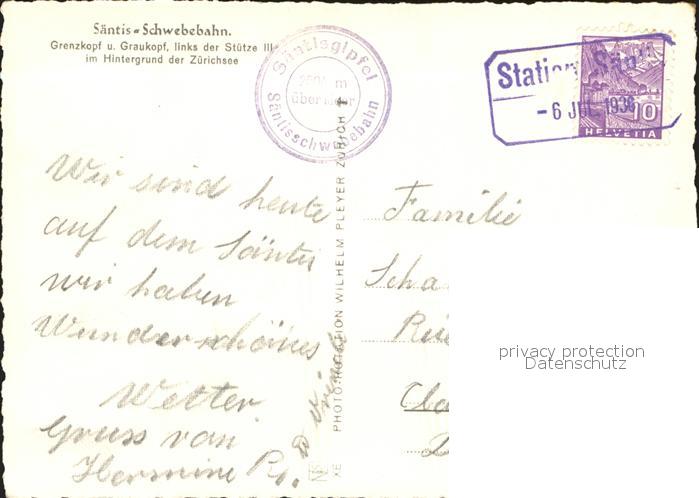 Säntis-Schwebebahn.
Grenzkopf u. Graukopf, links der Stütze III
im Hintergrund der Zürichsee
Säntisgipfel
über Meer
Säntisschwebebahn
Station Sän
- 6 JUL. 1936
10
HELVETIA
Wir sind heute
auf dem Säntis
wir haben
Wunderschönes
Wetter
Gruss von
Hermine
PHOTO-ROTATION WILHELM PLEYER ZÜRICH 1
XE
Familie
Scha
privacy protection
Datenschutz